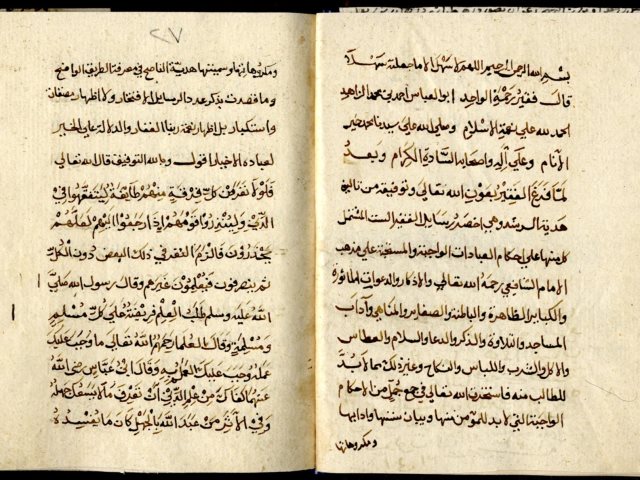 بسم الله الرحمن الرحيم اللهم لا سهل الا ما جعلته سهلا
قال فقير رحمة الواحد ابو العباس احمد بن محمد الزاهد
الحمد لله على نعمة الاسلام وصلى الله على سيدنا محمد خير
الانام وعلى آله واصحابه السادة الكرام وبعد
لما فرغ الفقير بعون الله تعالى وتوفيقه من تاليف
هدية وهي اخصر رسايل الفقير الست المشتمل
كل منها على احكام العبادات الواجبة والمستحبة على مذهب
الامام الشافعي رحمه الله تعالى والاذكار والدعوات الماثورة
والكباير الظاهرة والباطنة والصغاير والمناهي وآداب
المساجد والتلاوة والذكر والدعا والسلام والعطاس
والاكل والشرب واللباس والنكاح وغير ذلك مما لا بد
للطالب منه فاستخرت الله تعالى في جمع جمل من الاحكام
الواجبة التي لا بد للمؤمن منها وبيان سننها وادابها
ومكروهاتها
٢٠٧
ومكروهاتها وسميتها هدية الناصح في معرفة الطريق الواضح
وما قصدت بذكر عدد الرسايل الافتخار ولا اظهار
واستكبار بل اظهار نعمة ربنا الغفار والدلالة على الخير
لعباده الاخيار فاقول وبالله التوفيق قال الله تعالى
فلولا نفر من كل فرقة منهم طايفة ليتفقهوا في
الدين ولينذروا قومهم اذا رجعوا اليهم لعلهم
يحذرون فالزم التفقه في ذلك البعض دون الكل
ثم ينصرفون فيعلمون غيرهم وقال رسول الله صلى
الله عليه وسلم طلب العلم فريضة على كل مسلم
ومسلمة وقال العلما رحمهم الله تعالى ما وجب عليك
عمله وجب عليك العلم به وقال ابن عباس رضي الله
عنهما كفاك من علم الدين ان تعرف ما لا يسعك جهله
وفي الاثر من عبد الله بالجهل كان ما يفسده